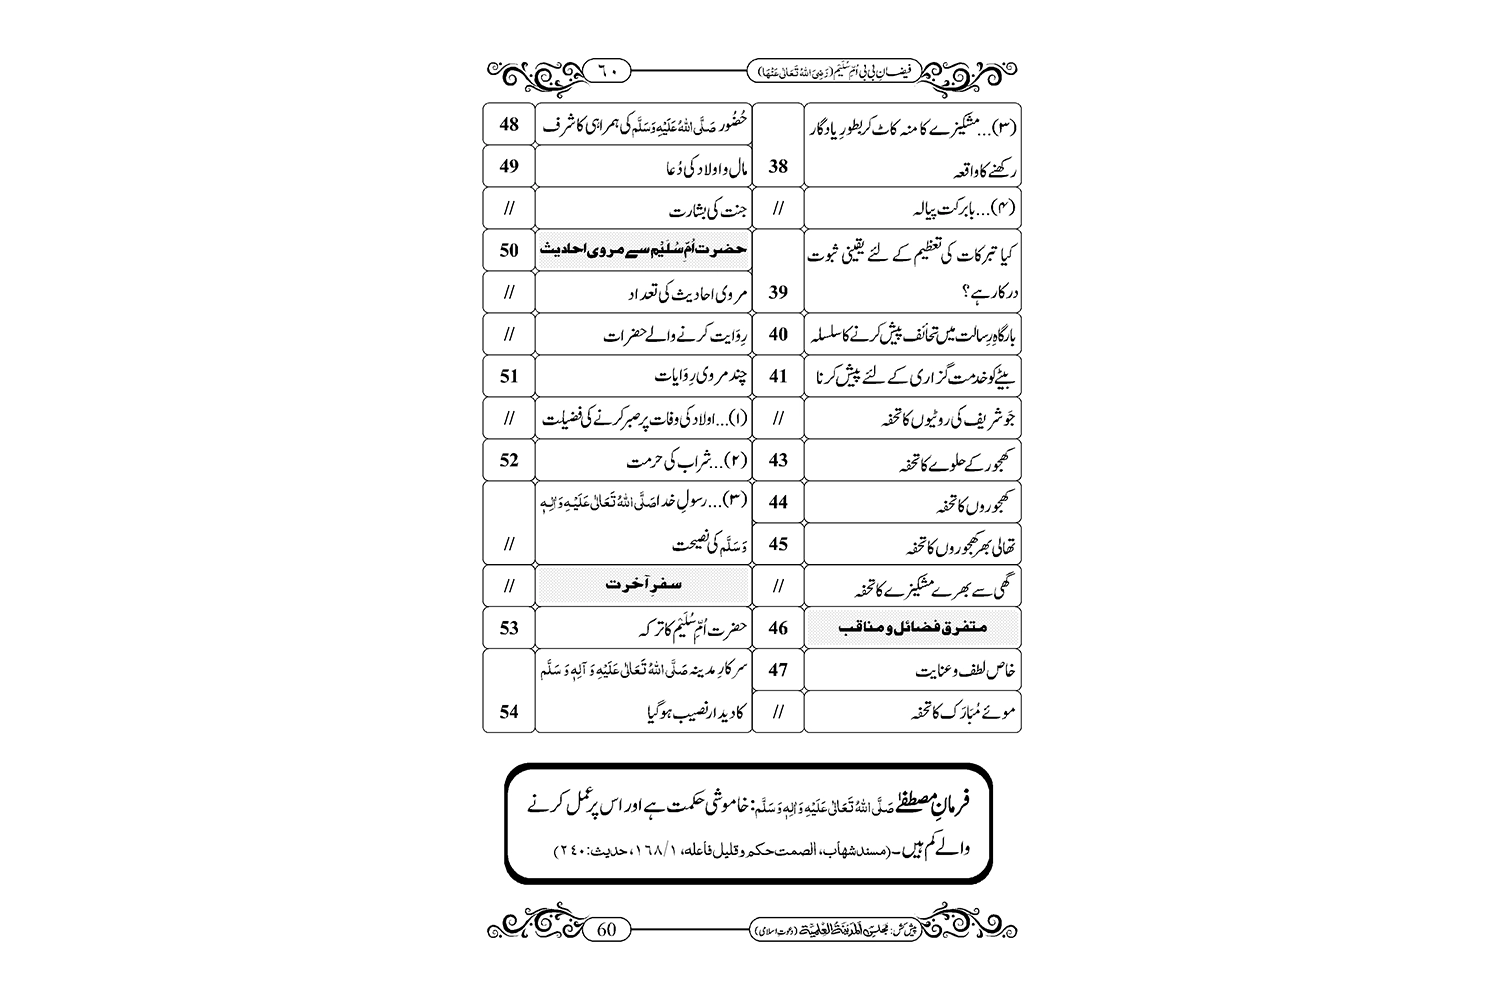 فیضانِ بی بی اُمِّ سُلَیْم (رَضِیَ اللّٰہُ تَعَالٰی عَنْہَا)
٦٠
(۳)...مشکیزے کا منہ کاٹ کر بطورِ یادگار
رکھنے کا واقعہ 38
(۴)...بابرکت پیالہ //
کیا تبرکات کی تعظیم کے لئے یقینی ثبوت
درکار ہے؟ 39
بارگاہِ رِسالت میں تحائف پیش کرنے کا سلسلہ 40
بیٹے کو خدمت گزاری کے لئے پیش کرنا 41
جَو شریف کی روٹیوں کا تحفہ //
کھجور کے حلوے کا تحفہ 43
کھجوروں کا تحفہ 44
تھالی بھر کھجوروں کا تحفہ 45
گھی سے بھرے مشکیزے کا تحفہ //
متفرق فضائل و مناقب 46
خاص لطف و عنایت 47
موئے مُبَارَک کا تحفہ //
حُضُور صَلَّی اللّٰہُ عَلَیْہِ وَسَلَّم کی ہمراہی کا شرف 48
مال و اولاد کی دُعا 49
جنت کی بشارت //
حضرت اُمِّ سُلَیْم سے مروی احادیث 50
مروی احادیث کی تعداد //
رِوَایت کرنے والے حضرات //
چند مروی رِوَایات 51
(۱)...اولاد کی وفات پر صبر کرنے کی فضیلت //
(۲)...شراب کی حرمت 52
(۳)...رسولِ خدا صَلَّی اللّٰہُ تَعَالٰی عَلَیْہِ وَاٰلِہٖ
وَسَلَّم کی نصیحت //
سفرِ آخرت //
حضرت اُمِّ سُلَیْم کا ترکہ 53
سرکارِ مدینہ صَلَّی اللّٰہُ تَعَالٰی عَلَیْہِ وَ آلِہٖ وَ سَلَّم
کا دیدار نصیب ہو گیا 54
فرمانِ مصطفےٰ صَلَّی اللّٰہُ تَعَالٰی عَلَیْہِ وَاٰلِہٖ وَسَلَّم: خاموشی حکمت ہے اور اس پر عمل کرنے
والے کم ہیں۔ (مسند شھاب، الصمت حکم و قلیل فاعلہ، ١/١٦٨، حدیث:٢٤٠)
پیش کش: مجلس اَلْمَدِیْنَۃُ الْعِلْمِیَّۃ (دعوتِ اسلامی)
60